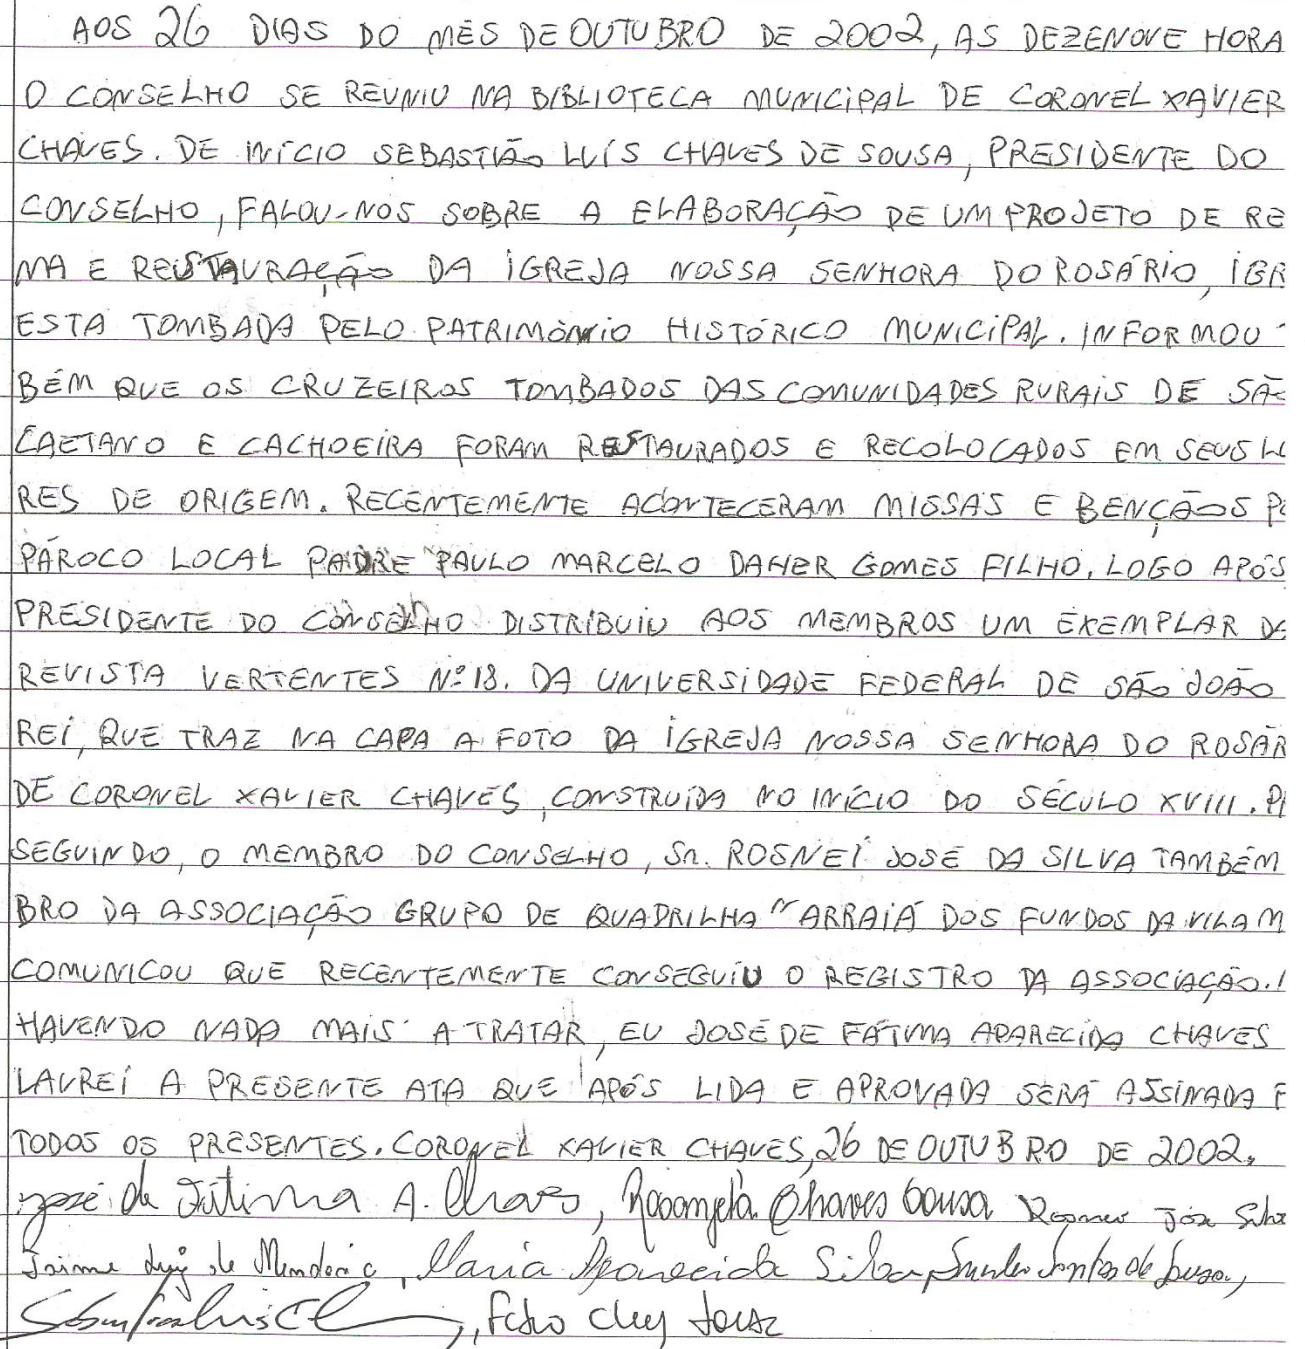 AOS 26 DIAS DO MÊS DE OUTUBRO DE 2002, AS DEZENOVE HORA
O CONSELHO SE REUNIU NA BIBLIOTECA MUNICIPAL DE CORONEL XAVIER
CHAVES. DE INÍCIO SEBASTIÃO LUÍS CHAVES DE SOUSA, PRESIDENTE DO
CONSELHO, FALOU-NOS SOBRE A ELABORAÇÃO DE UM PROJETO DE RE
MA E RESTAURAÇÃO DA IGREJA NOSSA SENHORA DO ROSÁRIO, IGR
ESTA TOMBADA PELO PATRIMÔNIO HISTÓRICO MUNICIPAL. INFORMOU
BÉM QUE OS CRUZEIROS TOMBADOS DAS COMUNIDADES RURAIS DE SÃO
CAETANO E CACHOEIRA FORAM RESTAURADOS E RECOLOCADOS EM SEUS LU
RES DE ORIGEM. RECENTEMENTE ACONTECERAM MISSAS E BENÇÃOS P
PÁROCO LOCAL PADRE PAULO MARCELO DAHER GOMES FILHO. LOGO APÓS
PRESIDENTE DO CONSELHO DISTRIBUIU AOS MEMBROS UM EXEMPLAR DA
REVISTA VERTENTES Nº 18. DA UNIVERSIDADE FEDERAL DE SÃO JOÃO
REI, QUE TRAZ NA CAPA A FOTO DA IGREJA NOSSA SENHORA DO ROSÁR
DE CORONEL XAVIER CHAVES, CONSTRUÍDA NO INÍCIO DO SÉCULO XVIII. P
SEGUINDO, O MEMBRO DO CONSELHO, Sr. ROSNEI JOSÉ DA SILVA TAMBÉM
BRO DA ASSOCIAÇÃO GRUPO DE QUADRILHA "ARRAIÁ DOS FUNDOS DA VILA M
COMUNICOU QUE RECENTEMENTE CONSEGUIU O REGISTRO DA ASSOCIAÇÃO.
HAVENDO NADA MAIS A TRATAR, EU JOSÉ DE FÁTIMA APARECIDA CHAVES
LAVREI A PRESENTE ATA QUE APÓS LIDA E APROVADA SERÁ ASSINADA
TODOS OS PRESENTES. CORONEL XAVIER CHAVES, 26 DE OUTUBRO DE 2002.
José de Fátima A. Chaves, Rosangela Chaves Sousa José Silva
Jaime Luiz de Mendonça, Maria Aparecida Silva, Santos de Sousa,